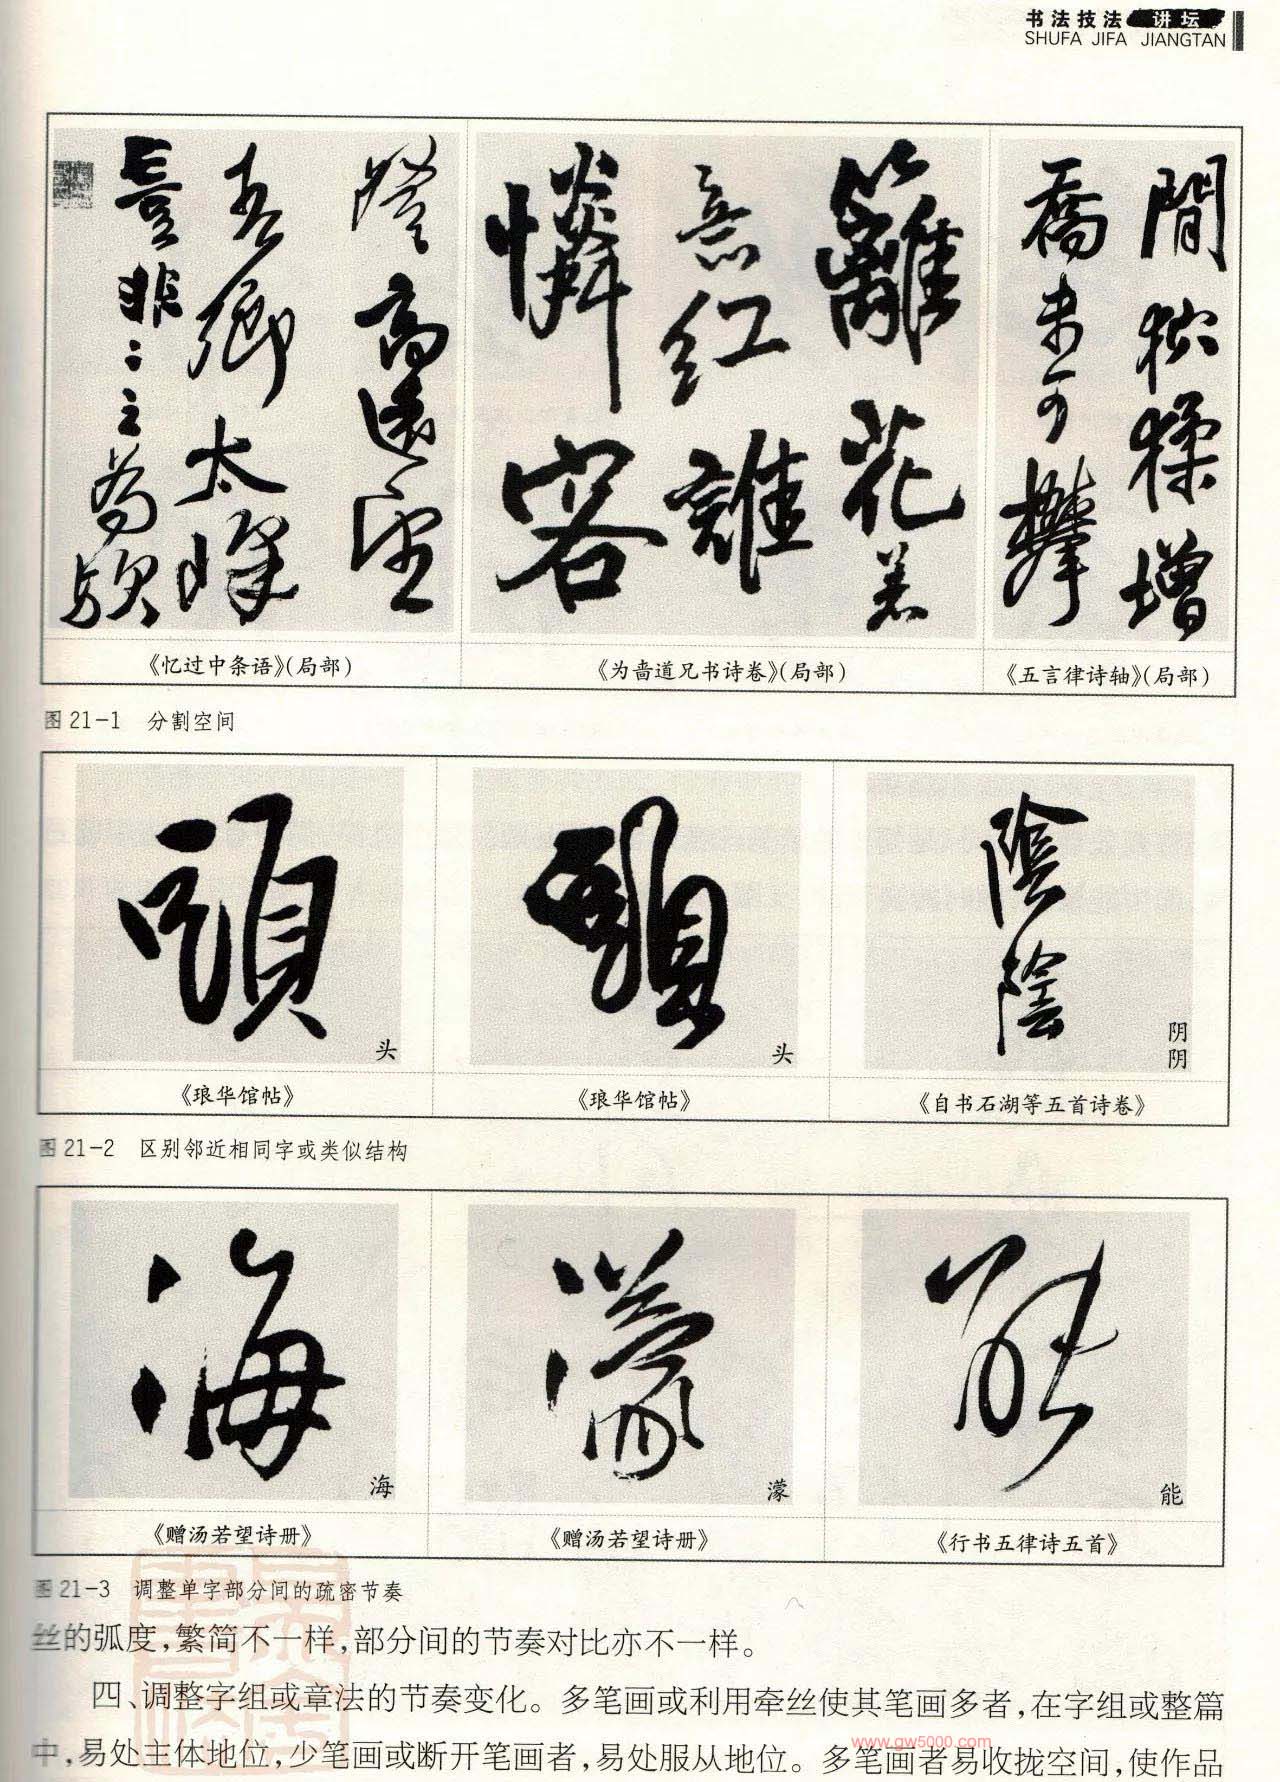 书法技法 讲坛
SHUFA JIFA JIANGTAN
閒
增
喬未可攀
籬花著
意红誰
憐容
登高遠望
太峰
喜非
《忆过中条语》(局部)
《为啬道兄书诗卷》(局部)
《五言律诗轴》(局部)
图 21-1 分割空间
頭
头
頭
头
陰陰
阴阴
《琅华馆帖》
《琅华馆帖》
《自书石湖等五首诗卷》
图 21-2 区别邻近相同字或类似结构
海
海
濛
濛
能
能
《赠汤若望诗册》
《赠汤若望诗册》
《行书五律诗五首》
图 21-3 调整单字部分间的疏密节奏
丝的弧度,繁简不一样,部分间的节奏对比亦不一样。
四、调整字组或章法的节奏变化。多笔画或利用牵丝使其笔画多者,在字组或整篇
中,易处主体地位,少笔画或断开笔画者,易处服从地位。多笔画者易收拢空间,使作品
www.gw5000.com